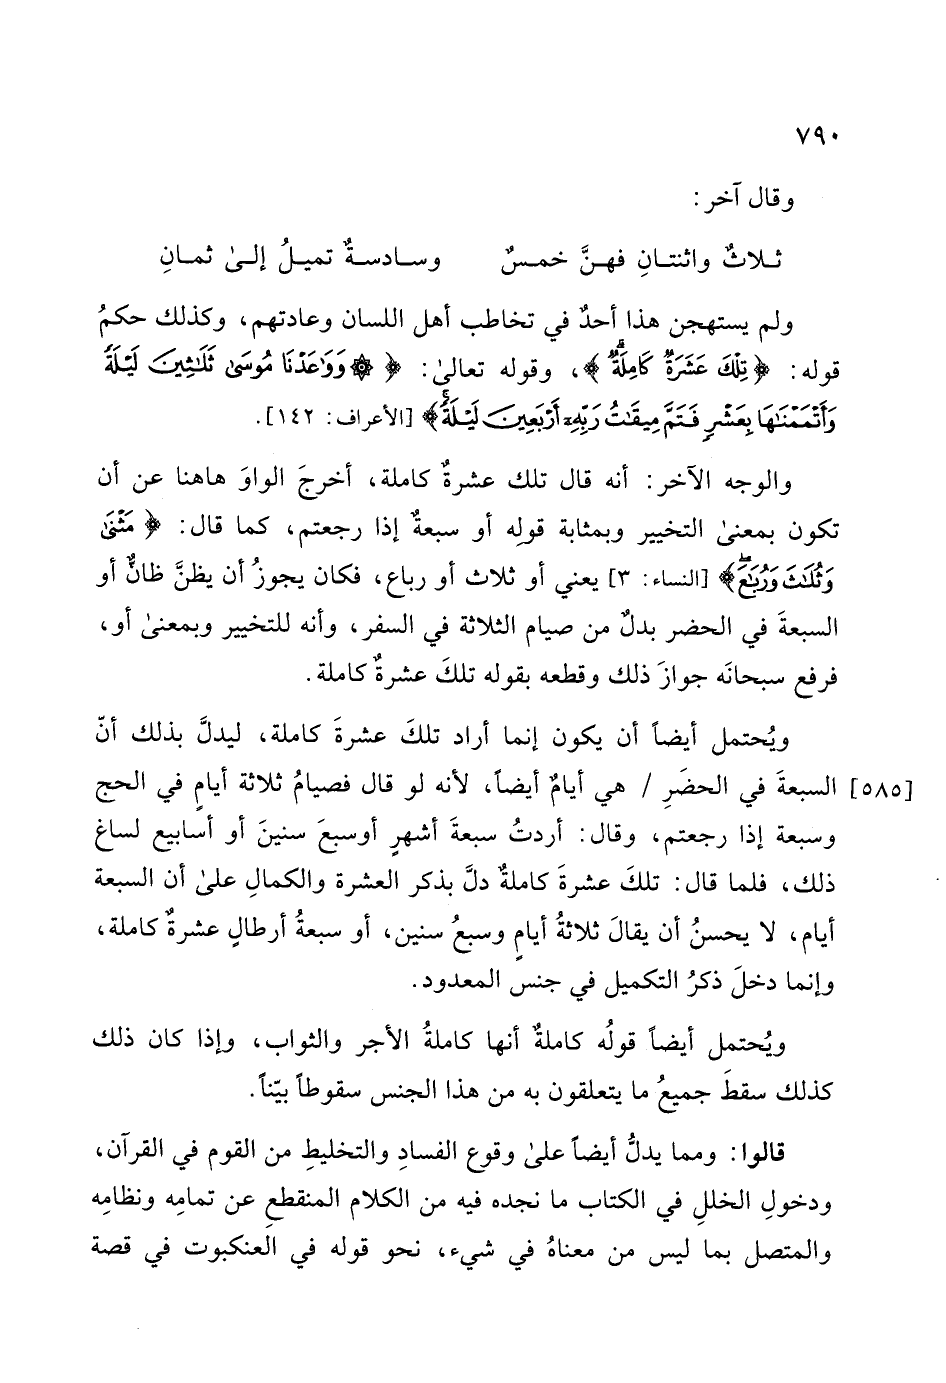 ٧٩٠
وقال آخر:
ثـلاثٌ واثنتـانِ فهـنَّ خمـسٌ وسـادسـةٌ تميـلُ إلـىٰ ثمـانِ
ولم يستهجن هذا أحدٌ في تخاطب أهل اللسان وعادتهم، وكذلك حكمُ
قوله: ﴿تِلْكَ عَشَرَةٌ كَامِلَةٌ﴾، وقوله تعالىٰ: ﴿ ۞ وَوَٰعَدْنَا مُوسَىٰ ثَلَٰثِينَ لَيْلَةً
وَأَتْمَمْنَٰهَا بِعَشْرٍ فَتَمَّ مِيقَٰتُ رَبِّهِۦٓ أَرْبَعِينَ لَيْلَةً﴾ [الأعراف: ١٤٢].
والوجه الآخر: أنه قال تلك عشرةٌ كاملة، أخرجَ الواوَ هاهنا عن أن
تكون بمعنىٰ التخيير وبمثابة قولِه أو سبعةٌ إذا رجعتم، كما قال: ﴿ مَثْنَىٰ
وَثُلَٰثَ وَرُبَٰعَ﴾ [النساء: ٣] يعني أو ثلاث أو رباع، فكان يجوزُ أن يظنَّ ظانٌّ أو
السبعةَ في الحضر بدلٌ من صيام الثلاثة في السفر، وأنه للتخيير وبمعنىٰ أو،
فرفع سبحانَه جوازَ ذلك وقطعه بقوله تلكَ عشرةٌ كاملة.
ويُحتمل أيضاً أن يكون إنما أراد تلكَ عشرةَ كاملة، ليدلَّ بذلك أنّ
[٥٨٥] السبعةَ في الحضَرِ / هي أيامٌ أيضاً، لأنه لو قال فصيامُ ثلاثة أيامٍ في الحج
وسبعة إذا رجعتم، وقال: أردتُ سبعةَ أشهرٍ أوسبعَ سنينَ أو أسابيع لساغ
ذلك، فلما قال: تلكَ عشرةَ كاملةٌ دلَّ بذكر العشرة والكمالِ علىٰ أن السبعة
أيام، لا يحسنُ أن يقالَ ثلاثةُ أيامٍ وسبعُ سنين، أو سبعةُ أرطالٍ عشرةٌ كاملة،
وإنما دخلَ ذكرُ التكميل في جنس المعدود.
ويُحتمل أيضاً قولُه كاملةٌ أنها كاملةُ الأجر والثواب، وإذا كان ذلك
كذلك سقطَ جميعُ ما يتعلقون به من هذا الجنس سقوطاً بيّناً.
قالوا: ومما يدلُّ أيضاً علىٰ وقوع الفسادِ والتخليطِ من القوم في القرآن،
ودخولِ الخللِ في الكتاب ما نجده فيه من الكلام المنقطعِ عن تمامِه ونظامِه
والمتصل بما ليس من معناهُ في شيء، نحو قوله في العنكبوت في قصة